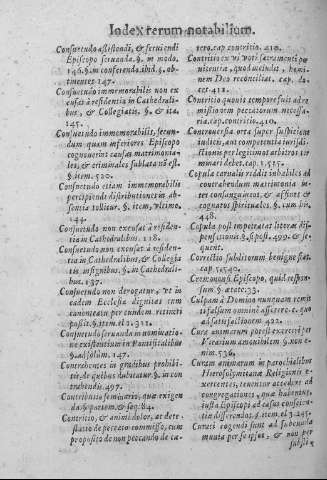 Index rerum notabilium.
Consuetudo assistendi, & seruiendi
Episcopo seruanda. §. in modo.
146. §. in conferendo. ibid. §. ob-
tinentes 147.
Consuetudo immemorabilis non ex
cusat à residentia in Cathedrali-
bus, & Collegiatis. §. & ita.
145.
Consuetudo immemorabilis, secun-
dum quam inferiores Episcopo
cognouerint causas matrimonia-
les, & criminales sublata
§. item. 520.
Consuetudo etiam immemorabilis
percipiendi distributiones in ab-
sentia tollitur. §. item,
144.
Consuetudo non excusat à residen-
tia in Cathedralibus. 118.
Consuetudo non excusat à residen-
tia in Cathedralibus, & Collegia
tis insignibus. §. in Cathedrali-
bus. 137.
Consuetudo non derogatur, vt in
eadem Ecclesia dignitas cum
canonicatu per eundem retineri
possit. §. item el 2. 311.
Consuetudo seruanda nominatio-
ne existentium in Pontificalibus
§. ad solùm. 147.
Contrahentes in gradibus prohibi-
tis, de quibus dubitatur. §. in con
trahendis. 497.
Contributio seminario, quæ exigen
da. §. partem, & seq. 84.
Contritio, & animi dolor, ac dete-
statio de peccato commisso, cum
proposito de non peccando de cæ-
tero. cap. contritio. 410.
Contritio cum ex vi voti sacramenti pœ
nitentiæ, quod includit, homi-
nem Deo reconciliat. cap. do-
cet 418.
Contritio quouis tempore fuit ad re
missionem peccatorum necessa-
ria. cap. contritio. 410.
Controuersia orta super suspicione
iudicis, aut competentia iurisdi-
ctionis per legitimos arbitros ter
minari debet. cap. 1. 525.
Copula carnalis reddit inhabiles ad
contrahendum matrimonia in-
ter consanguineos, & affines, &
cognatos spirituales. §. cum bis.
448.
Copula post impetratas literas dis-
pensationis. §. sed post. 499. & se-
quent.
Correctio subditorum benigne fiat.
cap. 1. 540.
Coepiscopi. Episcopo, quid respon-
sum §. attete. 33.
Culpam à Domino nunquam remit
ti falsum omnino asserere. c. quo
ad satisfactionem. 422.
Cura animarum potest exerceri per
Vicarium amouibilem. §. non e-
nim. 536.
Curam animarum in parochialibus
Hierosolymitanæ Religionis e-
xercentes, tenentur accedere ad
congregationes, quæ habentur,
iusta Episcopi ad casus conscien-
tiæ differendos. §. item. el 3. 245.
Curati cogendi sunt ad subeunda
munia per se ipsos, & non per
substi-